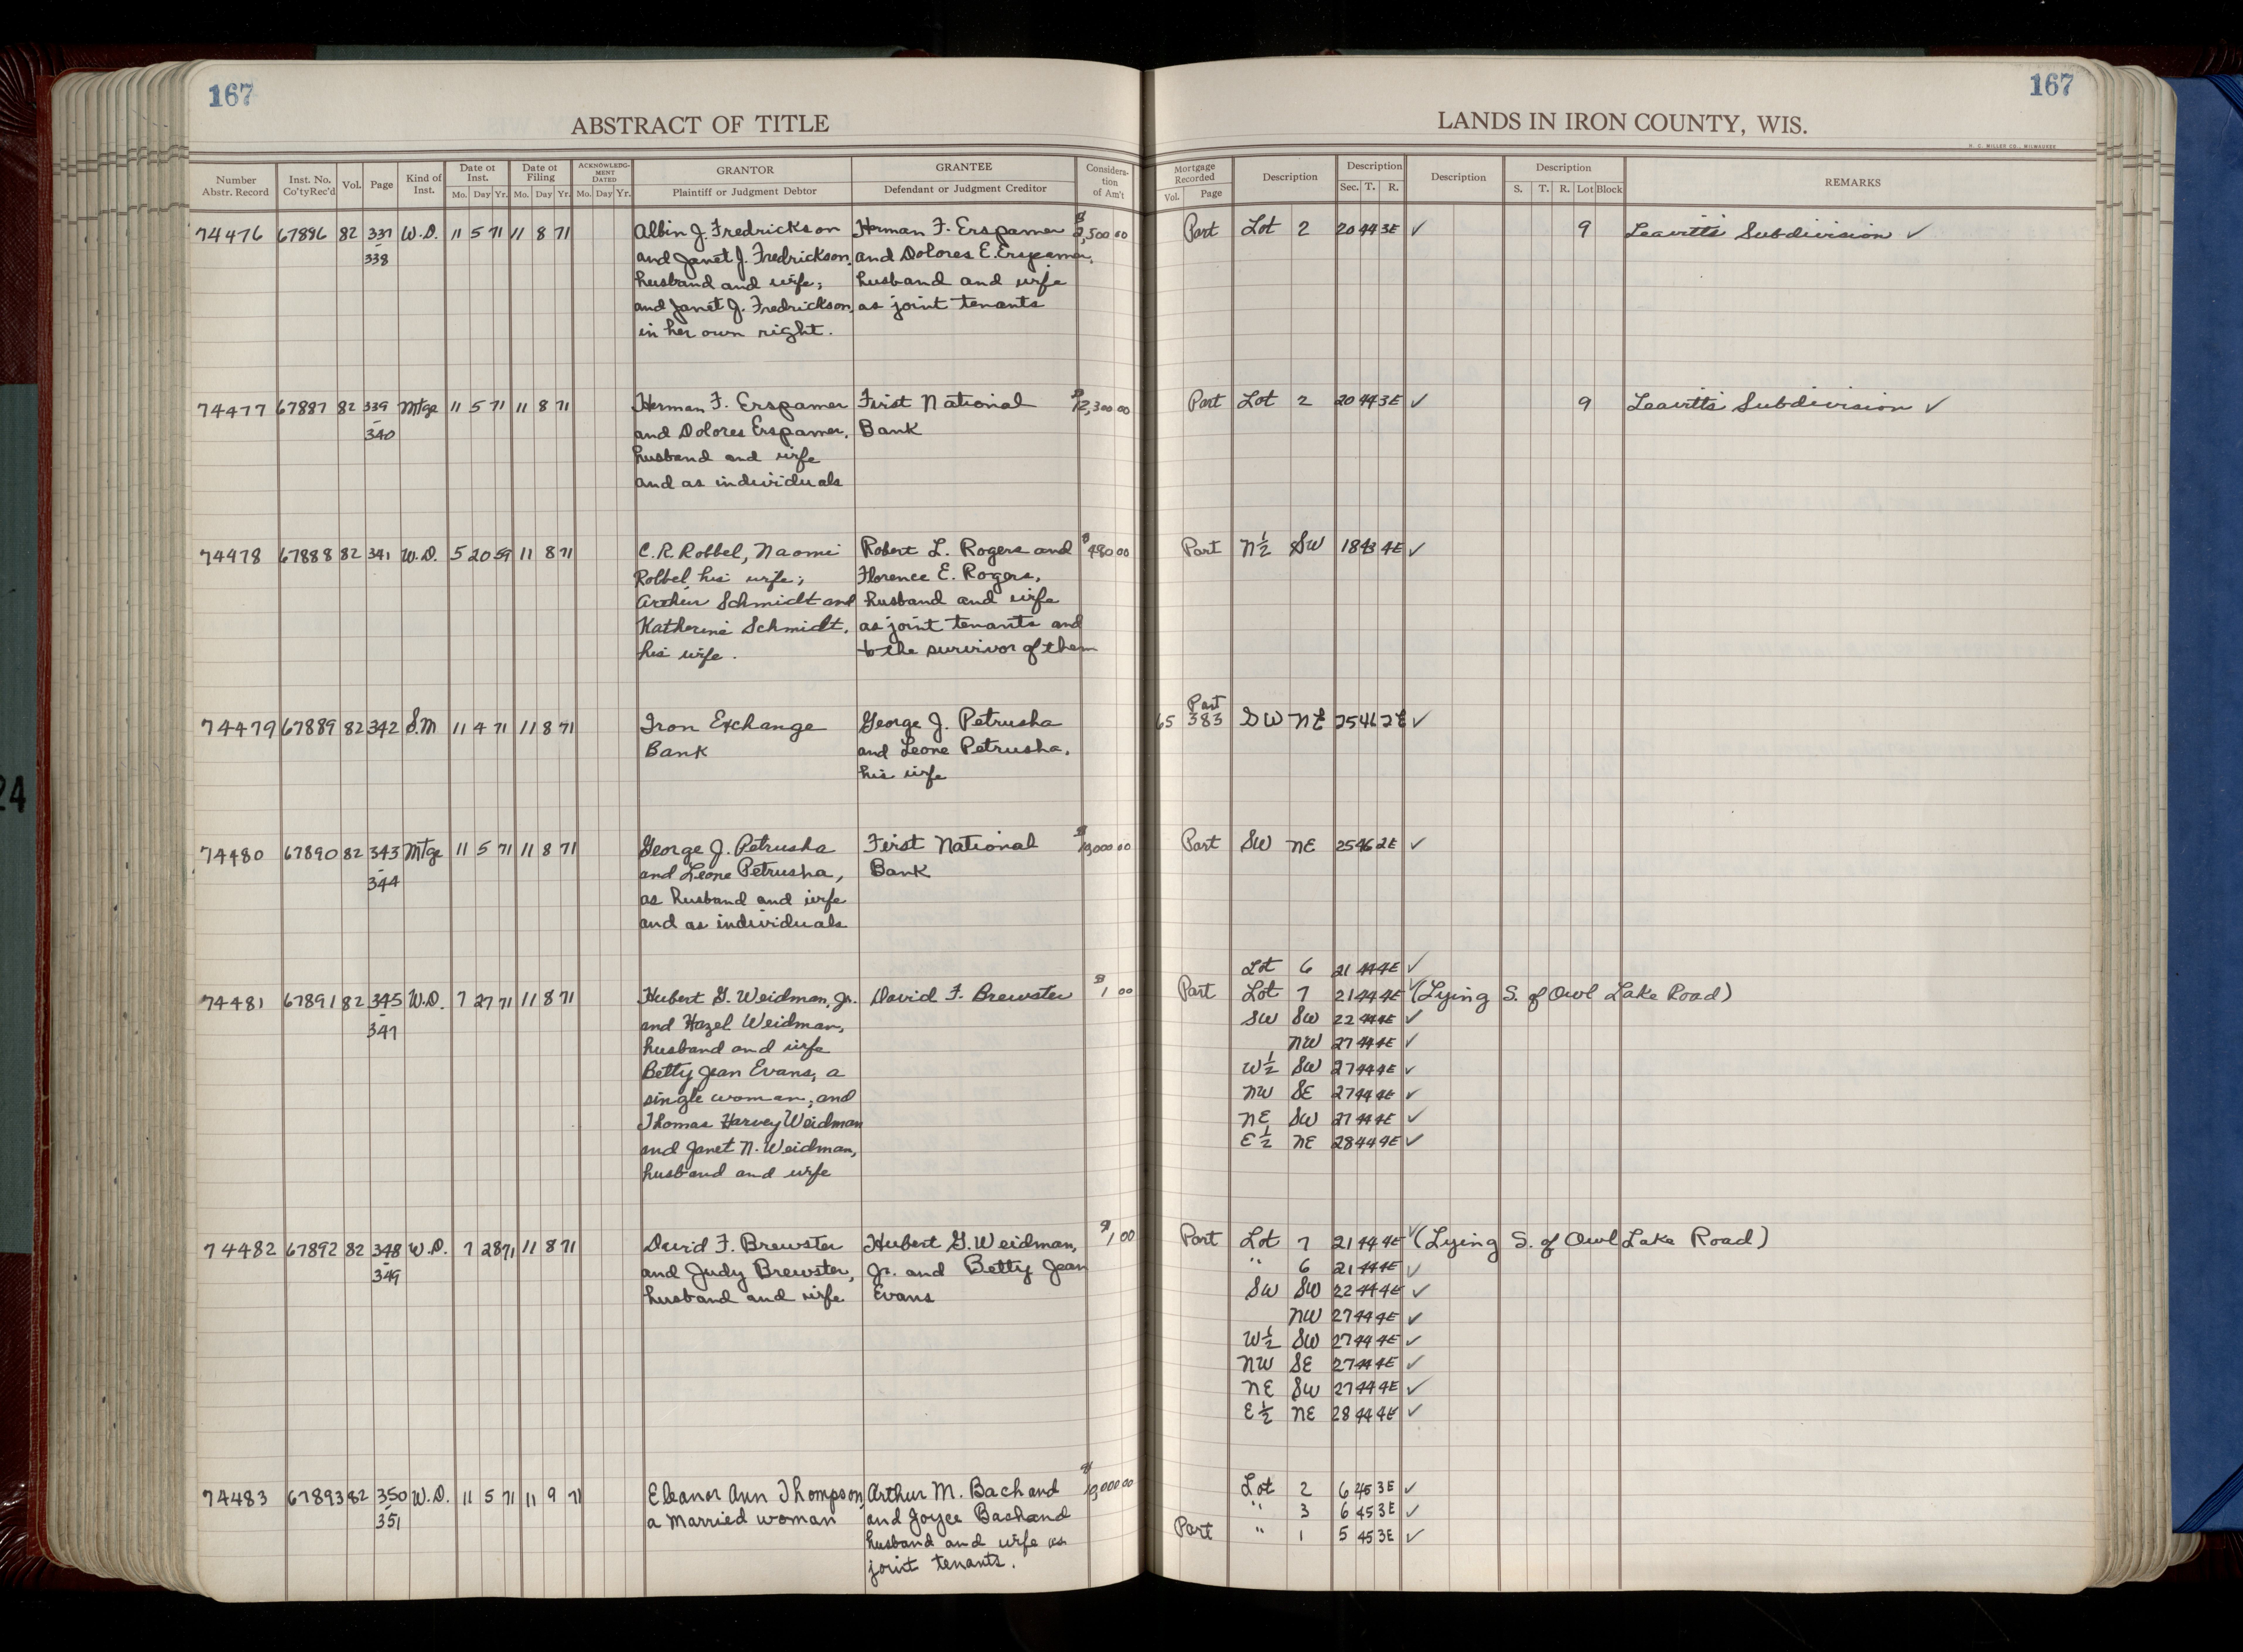 167
167
ABSTRACT OF TITLE
LANDS IN IRON COUNTY, WIS.
H. C. MILLER CO., MILWAUKEE
Number Abstr. Record | Inst. No. Co'tyRec'd | Vol. | Page | Kind of Inst. | Date of Inst. Mo. Day Yr. | Date of Filing Mo. Day Yr. | ACKNOWLEDG-MENT DATED Mo. Day Yr. | GRANTOR Plaintiff or Judgment Debtor | GRANTEE Defendant or Judgment Creditor | Considera-tion of Am't | Mortgage Recorded Vol. Page | Description | Description Sec. T. R. | Description | Description S. T. R. Lot Block | REMARKS
74476 67886 82 337 W.D. 11 5 71 11 8 71 Albin J. Fredrickson Herman F. Erspamer $ ,500 00 Part Lot 2 20 44 3E ✓ 9 Leavitt's Subdivision ✓
- 338 and Janet J. Fredrickson, and Dolores E. Erspamer,
husband and wife; husband and wife
and Janet J. Fredrickson, as joint tenants
in her own right.
74477 67887 82 339 Mtge 11 5 71 11 8 71 Herman F. Erspamer First National $12,300 00 Part Lot 2 20 44 3E ✓ 9 Leavitt's Subdivision ✓
- 340 and Dolores Erspamer, Bank
husband and wife
and as individuals
74478 67888 82 341 W.D. 5 20 59 11 8 71 C. R. Robbel, Naomi Robert L. Rogers and $480 00 Part N½ SW 18 43 4E ✓
Robbel, his wife; Florence E. Rogers,
Arthur Schmidt and husband and wife
Katherine Schmidt, as joint tenants and
his wife. to the survivor of them
Part
74479 67889 82 342 S.M 11 4 71 11 8 71 Iron Exchange George J. Petrusha 65 383 SW NE 25 46 2E ✓
Bank and Leone Petrusha,
his wife
74480 67890 82 343 Mtge 11 5 71 11 8 71 George J. Petrusha First National $10,000 00 Part SW NE 25 46 2E ✓
- 344 and Leone Petrusha, Bank
as husband and wife
and as individuals
Lot 6 21 44 4E ✓
74481 67891 82 345 W.D. 7 27 71 11 8 71 Hubert G. Weidman, Jr. David F. Brewster $1 00 Part Lot 7 21 44 4E ✓ (Lying S. of Owl Lake Road)
- 347 and Hazel Weidman, SW SW 22 44 4E ✓
husband and wife NW 27 44 4E ✓
Betty Jean Evans, a W½ SW 27 44 4E ✓
single woman, and NW SE 27 44 4E ✓
Thomas Harvey Weidman NE SW 27 44 4E ✓
and Janet N. Weidman, E½ NE 28 44 4E ✓
husband and wife
74482 67892 82 348 W.D. 7 28 71 11 8 71 David F. Brewster Hubert G. Weidman, $1 00 Part Lot 7 21 44 4E ✓ (Lying S. of Owl Lake Road)
- 349 and Judy Brewster, Jr. and Betty Jean " 6 21 44 4E ✓
husband and wife Evans SW SW 22 44 4E ✓
NW 27 44 4E ✓
W½ SW 27 44 4E ✓
NW SE 27 44 4E ✓
NE SW 27 44 4E ✓
E½ NE 28 44 4E ✓
74483 67893 82 350 W.D. 11 5 71 11 9 71 Eleanor Ann Thompson, Arthur M. Bachand $ ,000 00 Lot 2 6 45 3E ✓
- 351 a Married woman and Joyce Bachand " 3 6 45 3E ✓
husband and wife as Part " 1 5 45 3E ✓
joint tenants.
24